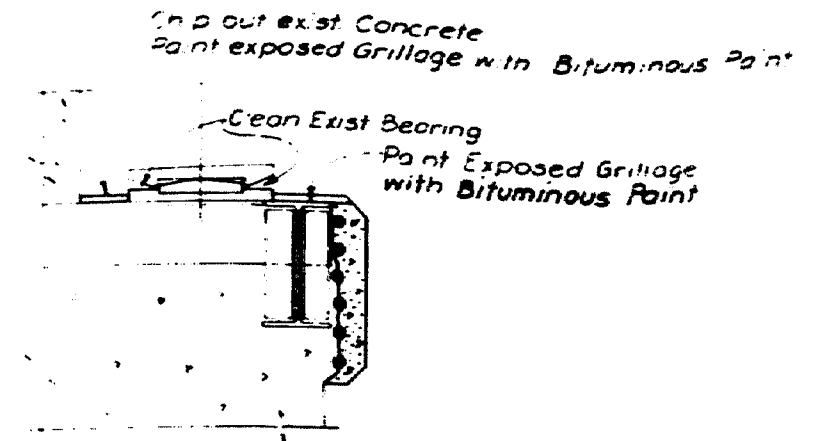 Chip out exist. Concrete
Paint exposed Grillage with Bituminous Paint
Clean Exist Bearing
Paint Exposed Grillage
with Bituminous Paint